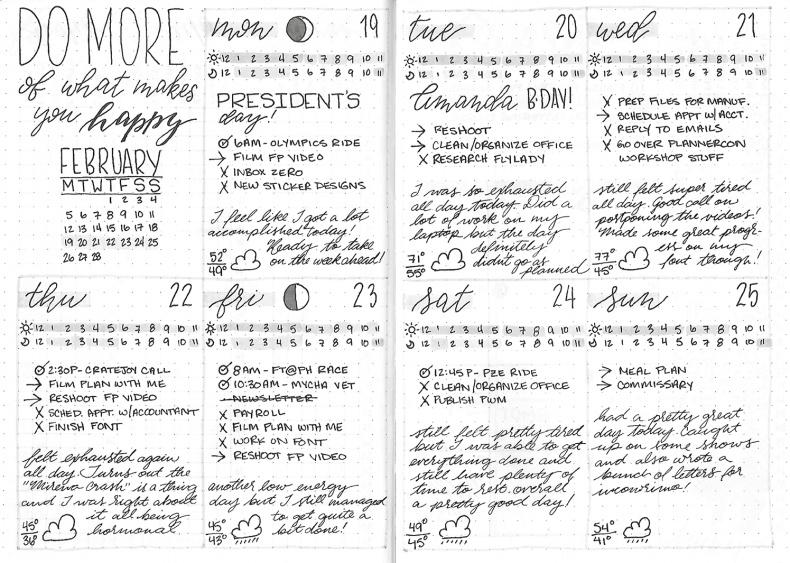 DO MORE
of what makes
you happy
FEBRUARY
M T W T F S S
1 2 3 4
5 6 7 8 9 10 11
12 13 14 15 16 17 18
19 20 21 22 23 24 25
26 27 28
mon 19
12 1 2 3 4 5 6 7 8 9 10 11
12 1 2 3 4 5 6 7 8 9 10 11
PRESIDENT'S
day!
6AM - OLYMPICS RIDE
→ FILM FP VIDEO
X INBOX ZERO
X NEW STICKER DESIGNS
I feel like I got a lot
accomplished today!
Ready to take
on the week ahead!
52°
49°
tue 20
12 1 2 3 4 5 6 7 8 9 10 11
12 1 2 3 4 5 6 7 8 9 10 11
Amanda B-DAY!
→ RESHOOT
→ CLEAN/ORGANIZE OFFICE
X RESEARCH FLYLADY
I was so exhausted
all day today. Did a
lot of work on my
laptop but the day
definitely
didn't go as
planned
71°
55°
wed 21
12 1 2 3 4 5 6 7 8 9 10 11
12 1 2 3 4 5 6 7 8 9 10 11
X PREP FILES FOR MANUF.
→ SCHEDULE APPT W/ ACCT.
X REPLY TO EMAILS
X GO OVER PLANNERCON
WORKSHOP STUFF
still felt super tired
all day. Good call on
postponing the videos!
Made some great progr-
ess on my
font though!
77°
45°
thu 22
12 1 2 3 4 5 6 7 8 9 10 11
12 1 2 3 4 5 6 7 8 9 10 11
2:30P - CRATEJOY CALL
→ FILM PLAN WITH ME
→ RESHOOT FP VIDEO
X SCHED. APPT. W/ACCOUNTANT
X FINISH FONT
felt exhausted again
all day. Turns out the
"Mirena Crash" is a thing
and I was right about
it all being
hormonal.
45°
36°
fri 23
12 1 2 3 4 5 6 7 8 9 10 11
12 1 2 3 4 5 6 7 8 9 10 11
8AM - FT@PH RACE
10:30AM - MYCHA VET
NEWSLETTER
X PAYROLL
X FILM PLAN WITH ME
X WORK ON FONT
→ RESHOOT FP VIDEO
another low energy
day but I still managed
to get quite a
bit done!
45°
43°
sat 24
12 1 2 3 4 5 6 7 8 9 10 11
12 1 2 3 4 5 6 7 8 9 10 11
12:45P - PZE RIDE
X CLEAN/ORGANIZE OFFICE
X PUBLISH PWM
still felt pretty tired
but I was able to get
everything done and
still have plenty of
time to rest. overall
a pretty good day!
49°
45°
sun 25
12 1 2 3 4 5 6 7 8 9 10 11
12 1 2 3 4 5 6 7 8 9 10 11
→ MEAL PLAN
→ COMMISSARY
had a pretty great
day today. Caught
up on some shows
and also wrote a
bunch of letters for
incowrimo!
54°
41°